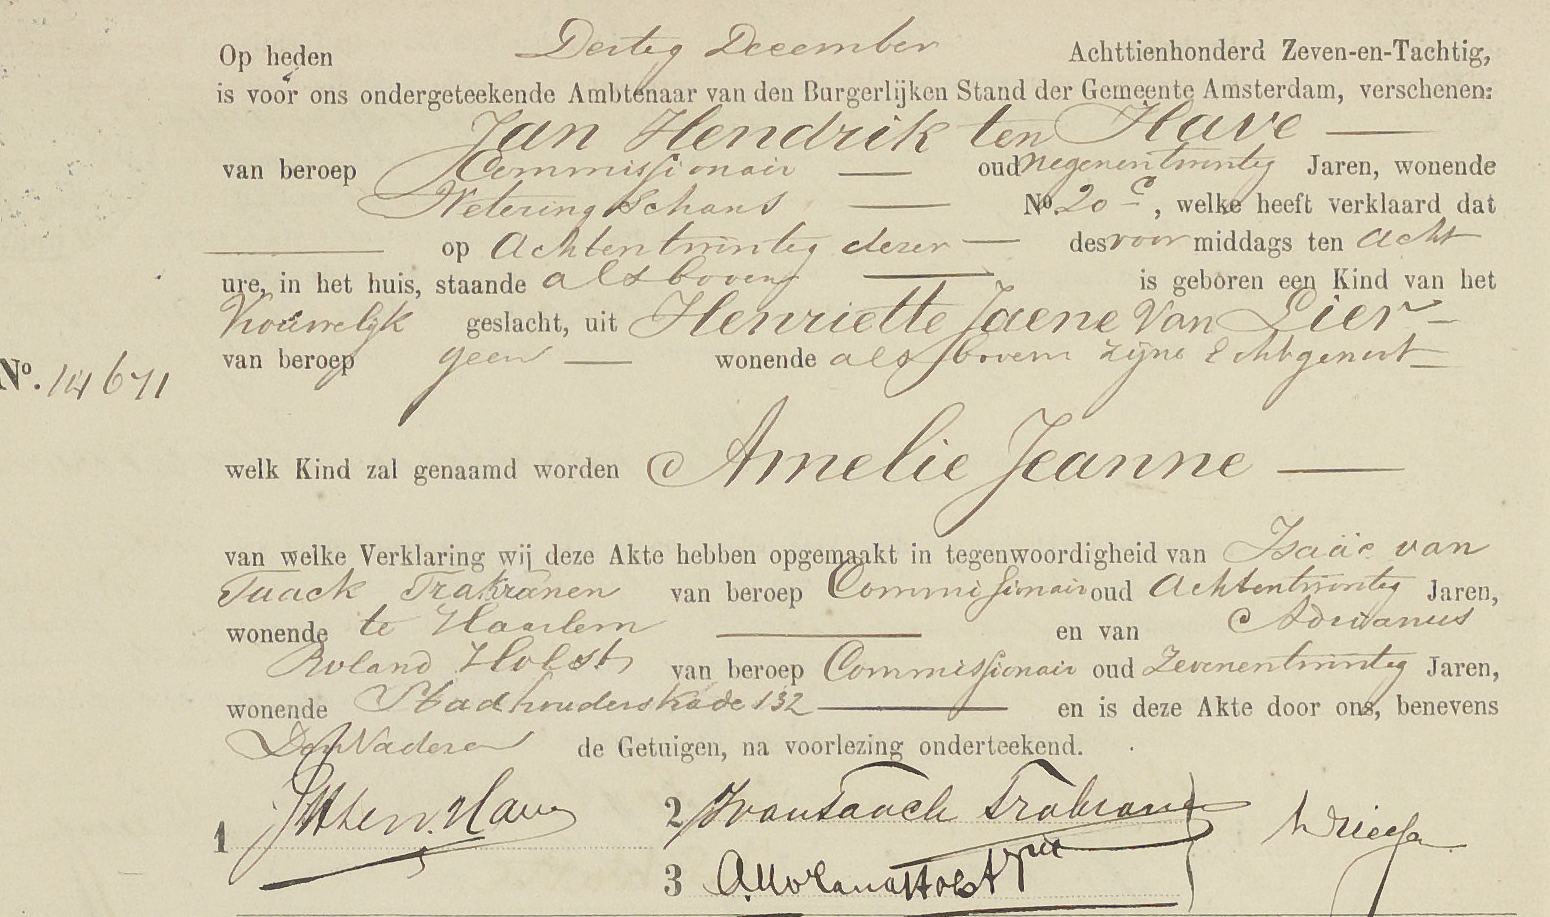 Op heden Dertig December Achttienhonderd Zeven-en-Tachtig,
is voor ons ondergeteekende Ambtenaar van den Burgerlijken Stand der Gemeente Amsterdam, verschenen:
Jan Hendrik ten Have
van beroep Commissionair oud negenentwintig Jaren, wonende
Wetering Schans No. 20 c, welke heeft verklaard dat
op Achtentwintig dezer des voor middags ten acht
ure, in het huis, staande als boven is geboren een Kind van het
Vrouwelijk geslacht, uit Henriette Jaene Van Lier
van beroep geen wonende als boven zijne Echtgenoot
No. 14671
welk Kind zal genaamd worden Amelie Jeanne
van welke Verklaring wij deze Akte hebben opgemaakt in tegenwoordigheid van Isaäc van
Taack Trakranen van beroep Commissionair oud Achtentwintig Jaren,
wonende te Haarlem en van Adrianus
Roland Holst van beroep Commissionair oud Zevenentwintig Jaren,
wonende Stadhouderskade 132 en is deze Akte door ons, benevens
Den Vader en de Getuigen, na voorlezing onderteekend.
1 JHten Have 2 IvanTaack Trakranen
3 ARolandHolst